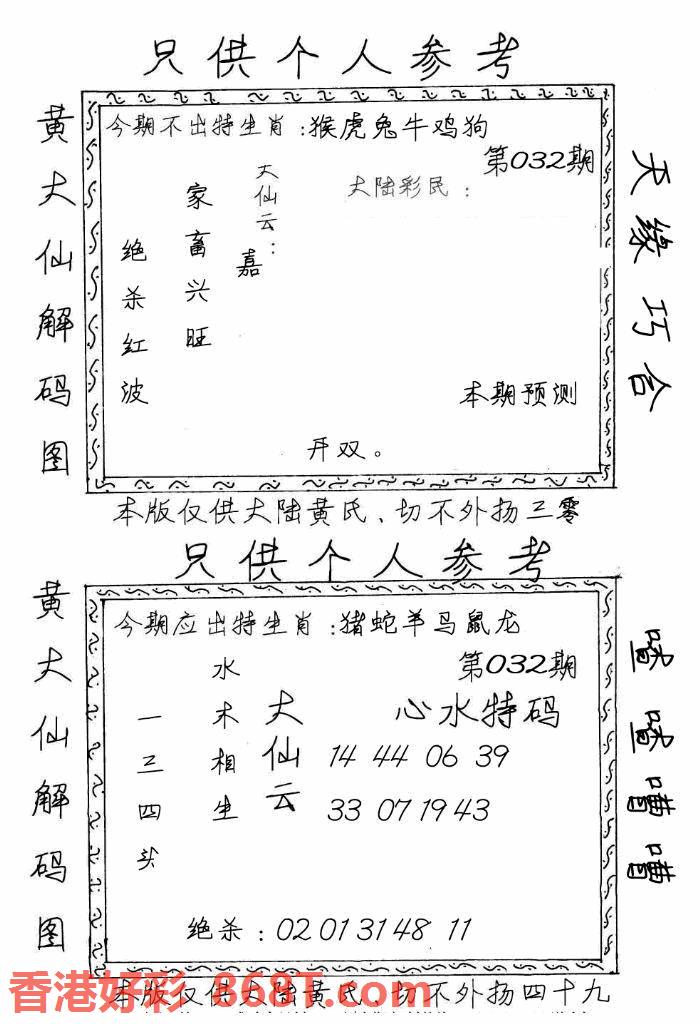 只供个人参考
黄大仙解码图
今期不出特生肖：猴虎兔牛鸡狗
第032期
大陆彩民：
大仙云：
嘉
家畜兴旺
绝杀红波
本期预测
开双。
天缘巧合
本版仅供大陆黄氏、切不外扬三零
只供个人参考
黄大仙解码图
今期应出特生肖：猪蛇羊马鼠龙
第032期
心水特码
水木相生
大仙云
一三四头
14 44 06 39
33 07 19 43
绝杀：02 01 31 48 11
本版仅供大陆黄氏、切不外扬四十九
香港好彩 868T.com